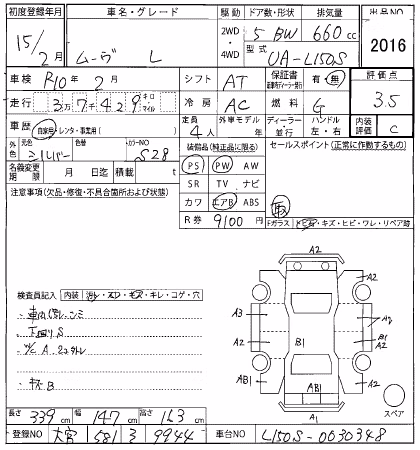 初度登録年月 車名・グレード 駆動 ドア数・形状 排気量 出品NO
15/2月 ムーヴ L 2WD・4WD 5 BW 660cc 2016
型式 UA-L150S
車検 R10年2月 シフト AT 保証書 有・無 評価点
走行 37429 キロ・マイル 冷房 AC 燃料 G 3.5
車歴 自家用・レンタ・事業用( ) 定員 4人 外車モデル 年 ディーラー・並行 ハンドル 左・右 内装評価 C
外色 元色 シルバー 色替 カラーNO S28 装備品(純正品に限る) セールスポイント(正常に作動するもの)
名義変更期限 月 日迄 積載 t PS PW AW
注意事項(欠品・修復・不具合箇所および状態) SR TV ナビ
カワ エアB ABS
R券 9100円
Fガラス トビ石・キズ・ヒビ・ワレ・リペア跡
A2
A2 A2
検査員記入 内装 汚レ・スレ・キズ・キレ・コゲ・穴
・車内汚レ・シミ A3 A2
・下廻りS A2 B1 B1 A2
・W/C A
・キズB AB1 AB1 A2
A1 スペア
長さ 339cm 幅 147cm 高さ 163cm
登録NO 大宮 581 る 9944 車台NO L150S-0030348